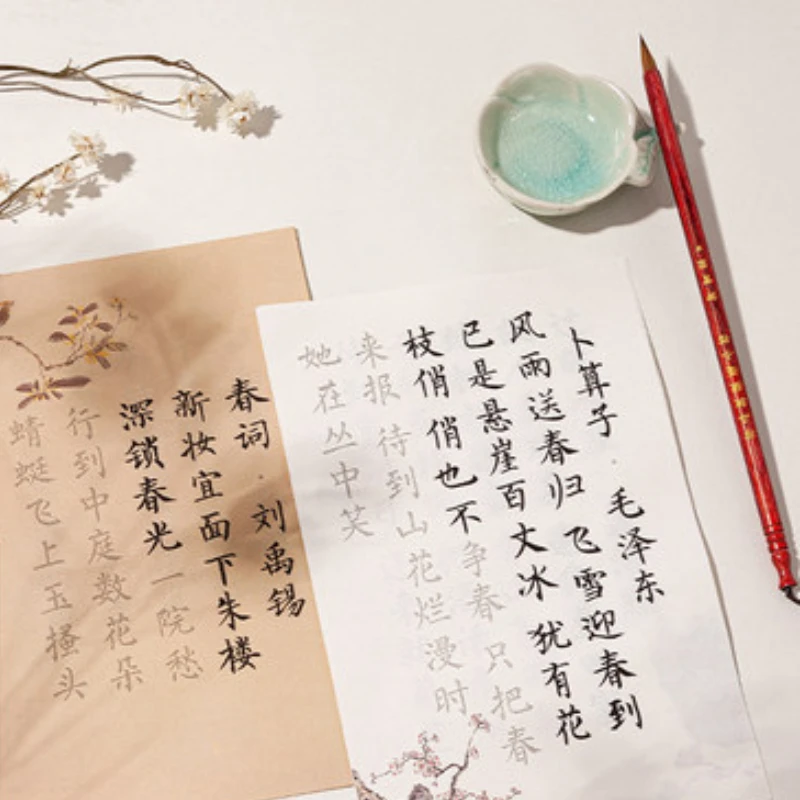 卜算子 · 毛泽东
风雨送春归 飞雪迎春到
已是悬崖百丈冰 犹有花
枝俏 俏也不争春 只把春
来报 待到山花烂漫时
她在丛中笑
春词 · 刘禹锡
新妆宜面下朱楼
深锁春光一院愁
行到中庭数花朵
蜻蜓飞上玉搔头